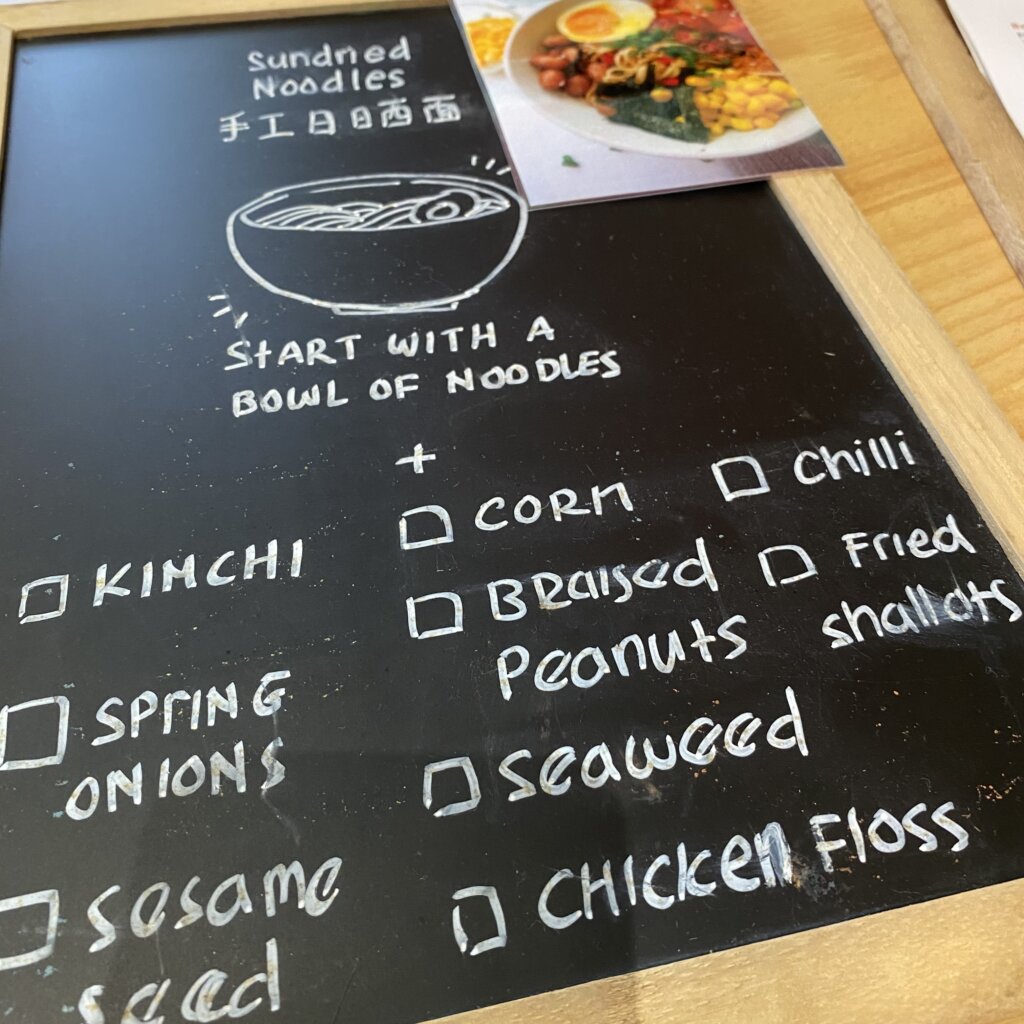 Sundried
Noodles
手工日晒面
START WITH A
BOWL OF NOODLES
+
KIMCHI
SPRING
ONIONS
Sesame
seed
CORN
BRaised
Peanuts
Seaweed
CHICken Floss
Chilli
Fried
shallots